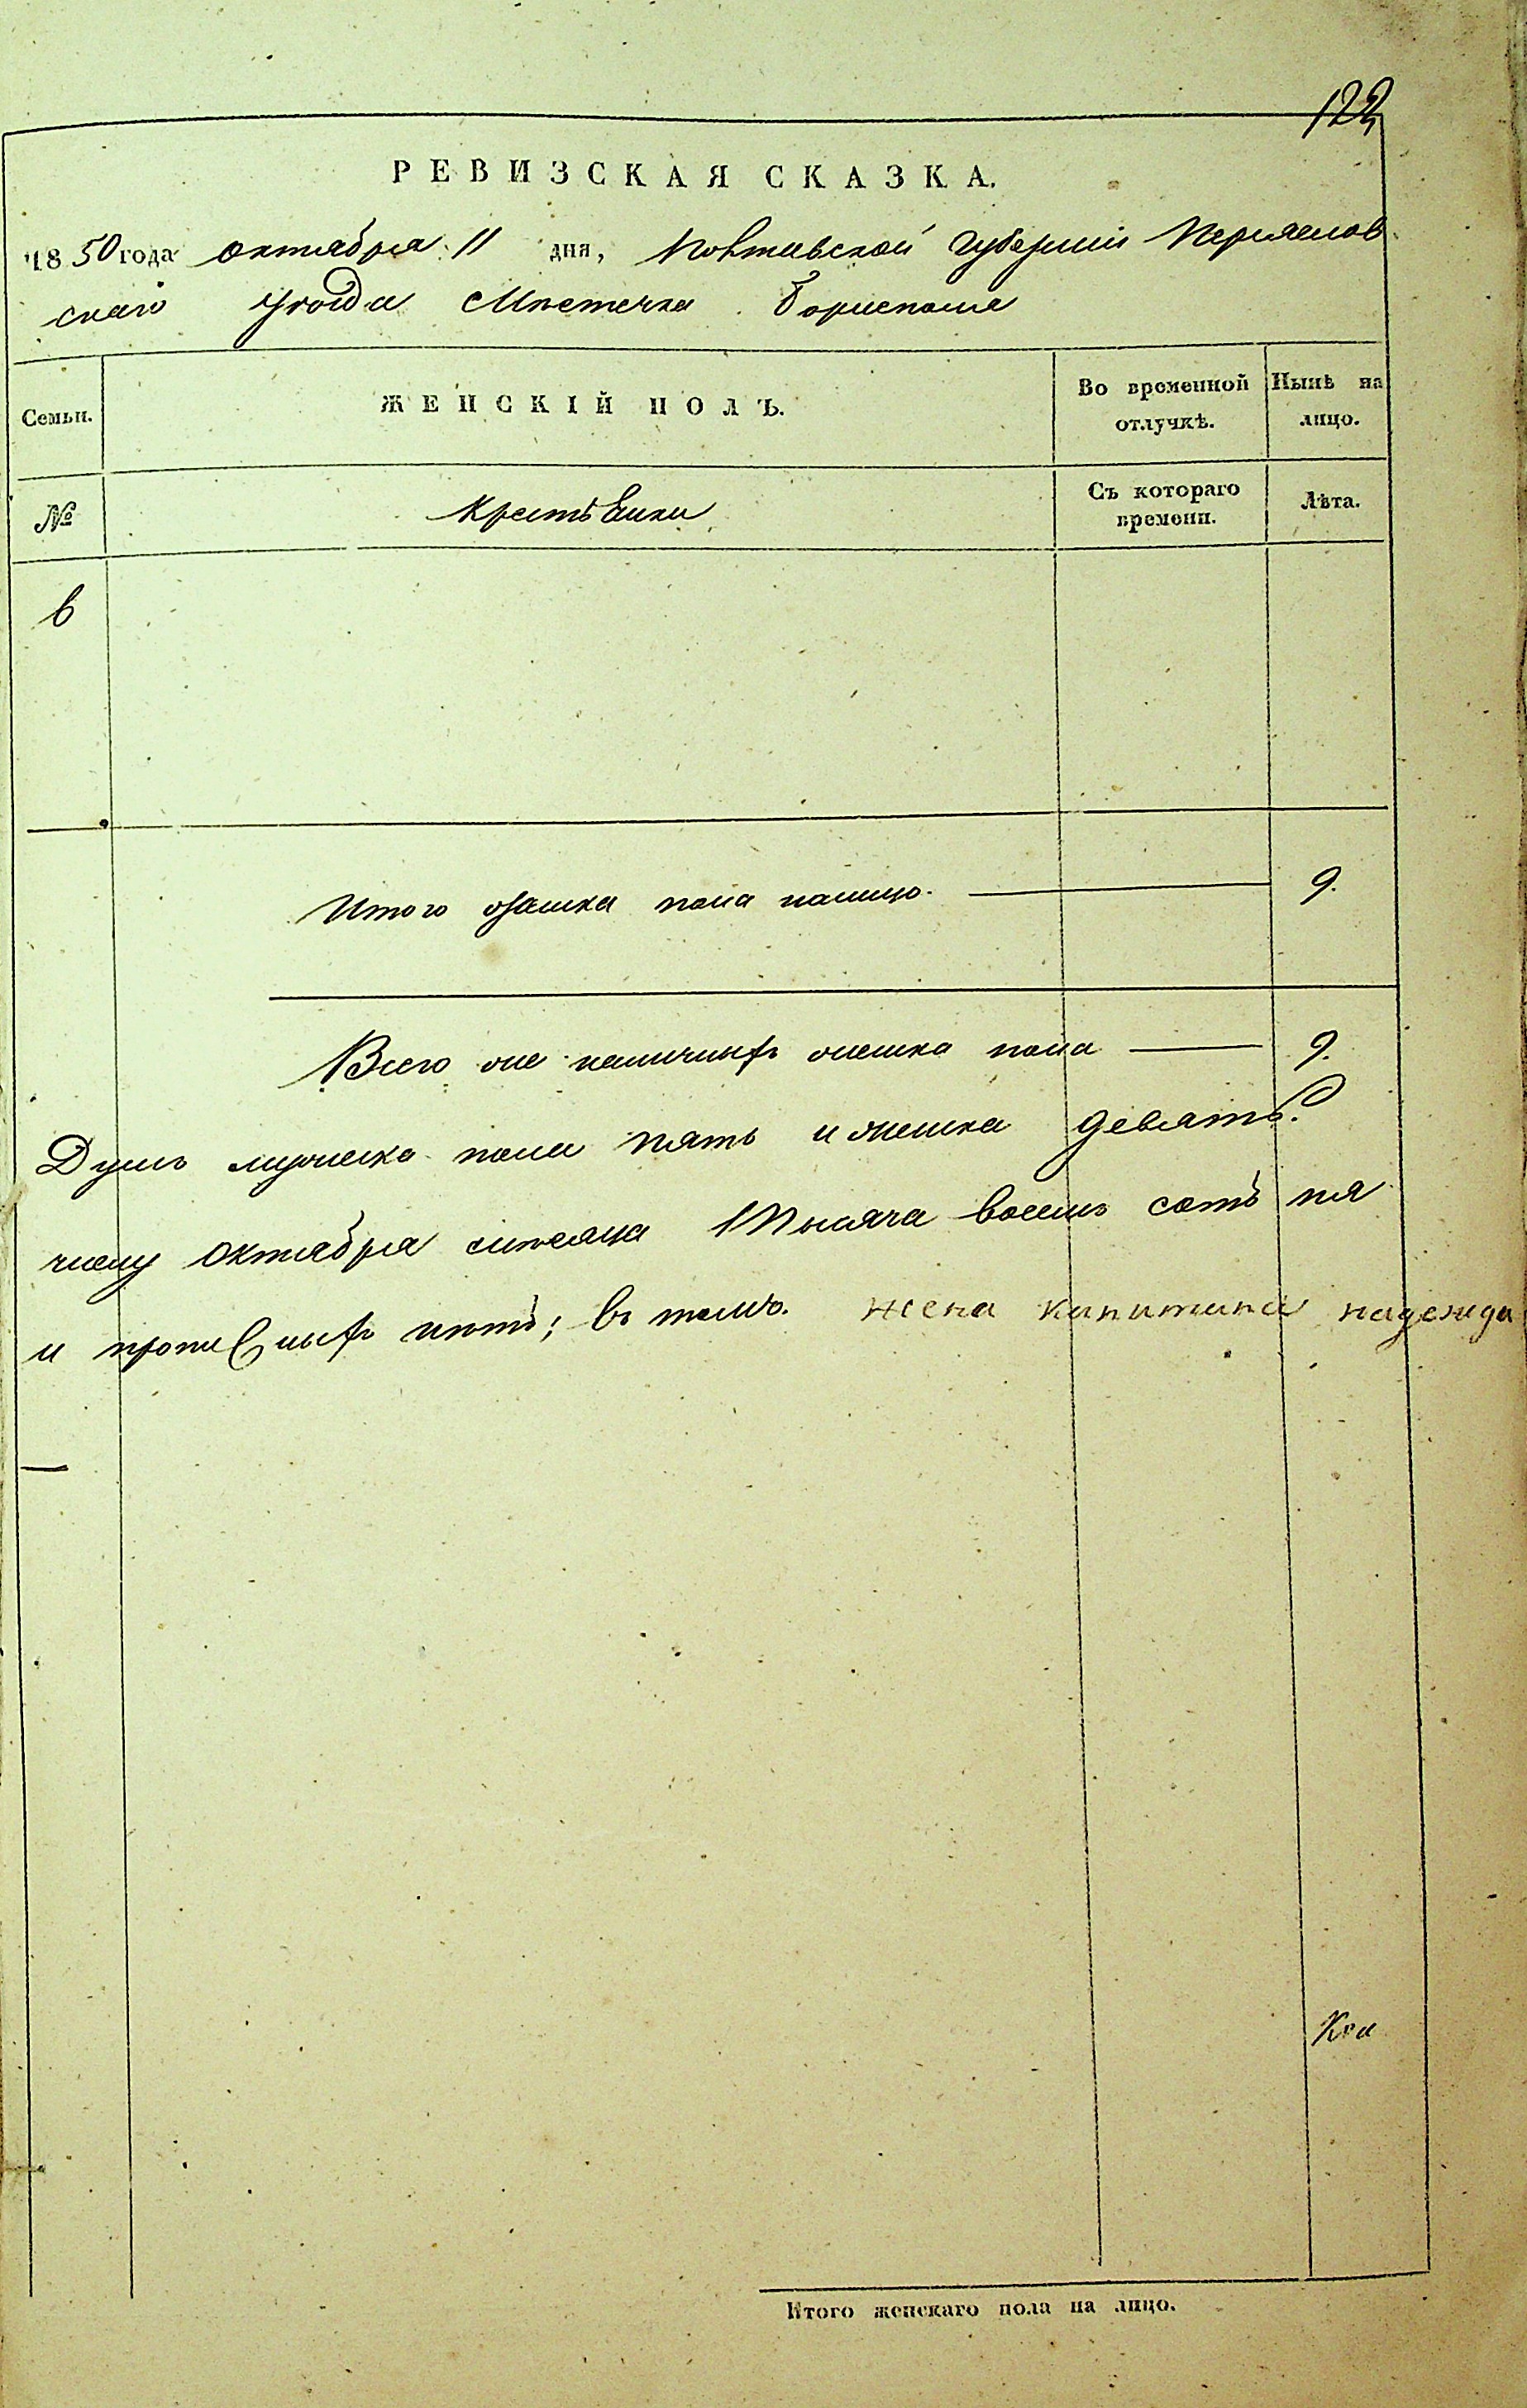 122
РЕВИЗСКАЯ СКАЗКА.
1850 года октября 11 дня, Полтавской Губернии Переяслов
скаго уезда Местечка Борисполя
Семьи. ЖЕНСКІЙ ПОЛЪ. Во временной отлучкѣ. Нынѣ на лицо.
№ Крестьянки Съ котораго времени. Лѣта.
6
Итого женска пола налицо. 9.
Всего же наличныхъ женска пола 9.
Душъ мужеска пола пять и женска девять.
числу Октября месяца Тысяча восемь сотъ пя
и прописныхъ нетъ; въ томъ. жена капитана надежда
Итого женскаго пола на лицо.